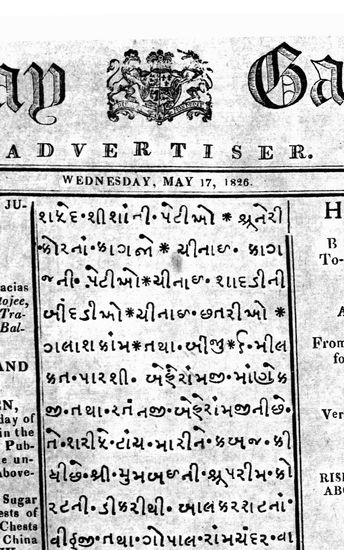 ay Ga
ADVERTISER.
WEDNESDAY, MAY 17, 1826.
JU-
acias
Tra-
Bal-
AND
EN,
day of
in the
Pub-
e un-
above-
Sugar
ests of
Chests
China
શફેદ·શીશાંની·પેટીઓ * શ્રૂનેરી
કોરનાં·કાગજો * ચીનાઇ· કાગ
જની·પેટીઓ*ચીનાઇ·શાદડીની
બીંદડીઓ*ચીનાઇ·છતરીઓ *
ગલાશકાંમ*તથા·બીજુ*ઈ·મીલ
કત·પારશી· બેહેરાંમજી·માંણેક
જી·તથા·રતંનજી·બેહેરાંમજીનીછે·
તે·શરીફે·ટાંચ·મારીને·કબજ·કી
ધીછે·શ્રી·મુમબઇની·શ્રૂપરીમ·કો
રટની·ડીકરીથી· આલકરશટનાં·
તથા·ગોપાલ·રાંમચંદર·વા
H
B
To-
A
From
fo
Ver
RIS
AB